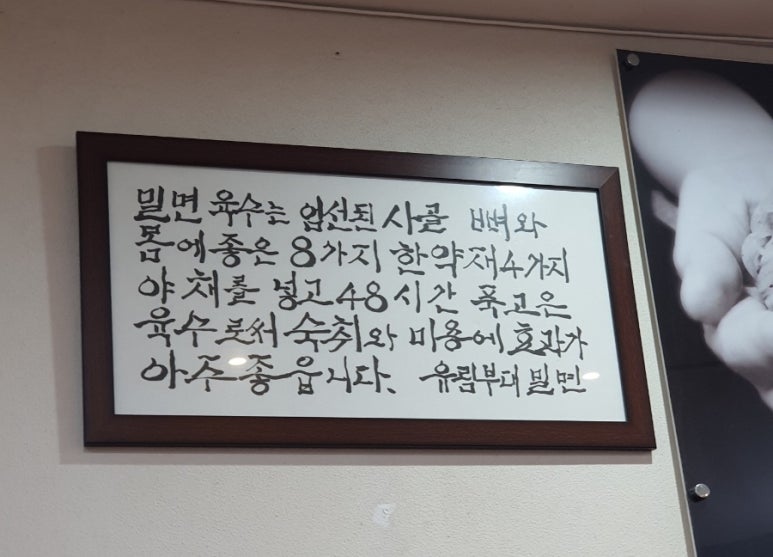 밀면 육수는 엄선된 사골 뼈와
몸에 좋은 8가지 한약재 4가지
야채를 넣고 48시간 푹고은
육수로써 숙취와 미용에 효과가
아주 좋읍니다. 유림부대밀면